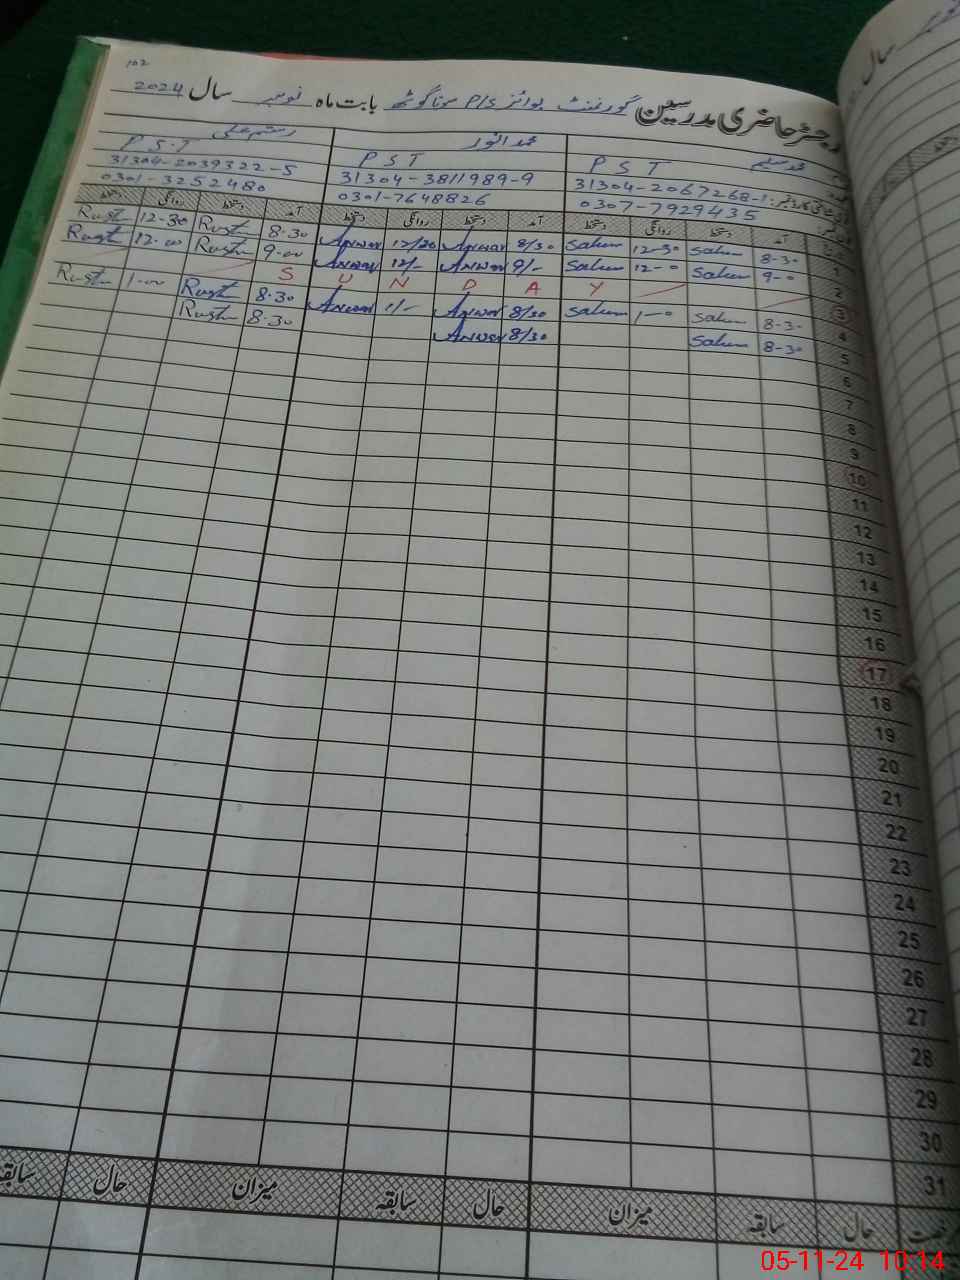 102
رجسٹر حاضری مدرسین گورنمنٹ بوائز P/S سونا گوٹھ بابت ماہ نومبر سال 2024
محمد سلیم محمد انور رستم علی
P S T P S T P S T
31304-2067268-1 31304-3811989-9 31304-2039322-5
0307-7929435 0301-7648826 0301-3252480
آمد دستخط روانگی دستخط آمد دستخط روانگی دستخط آمد دستخط روانگی دستخط
1 8-30 Salum 12-30 Salum 8/30 Anwar 12/30 Anwar 8.30 Rust 12-30 Rust
2 9-0 Salum 12-0 Salum 9/- Anwar 12/- Anwar 9.00 Rust 12.00 Rust
3 S U N D A Y
4 8-30 Salum 1-0 Salum 8/30 Anwar 1/- Anwar 8.30 Rust 1.00 Rust
5 8-30 Salum 8/30 Anwar 8.30 Rust
6
7
8
9
10
11
12
13
14
15
16
17
18
19
20
21
22
23
24
25
26
27
28
29
30
31
رخصت حال سابقہ میزان حال سابقہ میزان حال سابقہ
05-11-24 10:14